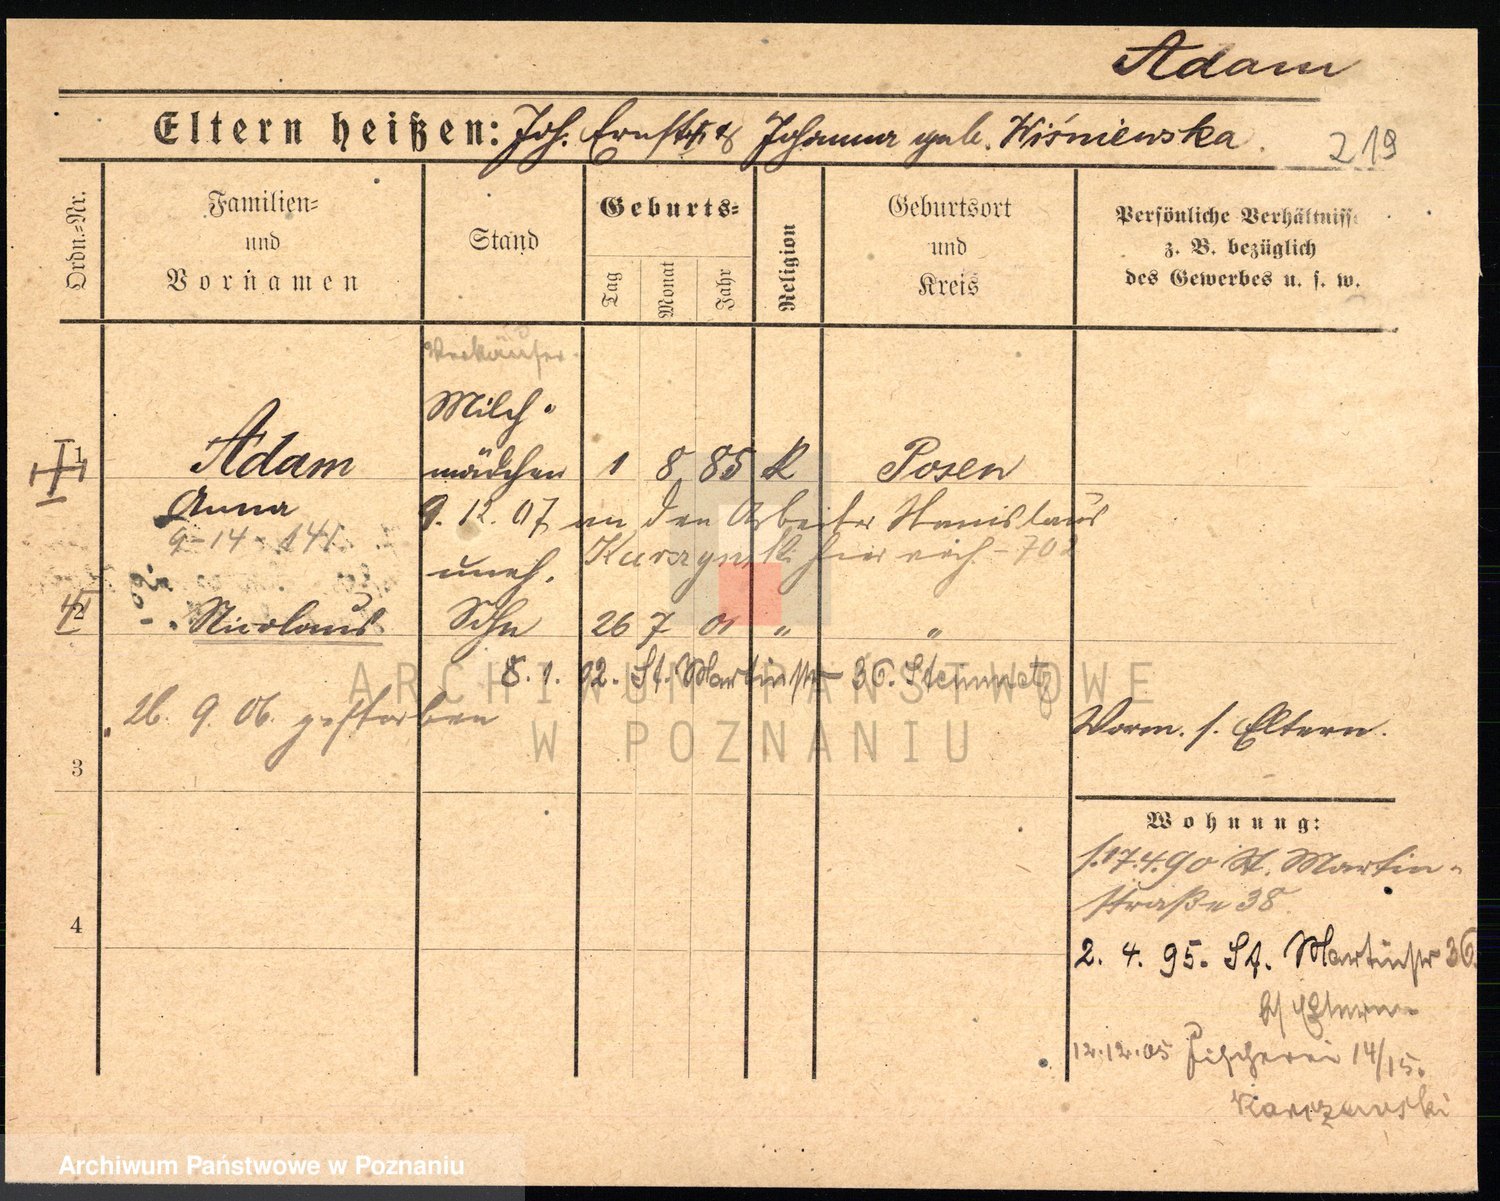 Adam
Eltern heißen: Joh. Ernst & Johanna geb. Wiśniewska.
219
Ordn.-Nr.
Familien-
und
Vornamen
Stand
Geburts-
Tag
Monat
Jahr
Religion
Geburtsort
und
Kreis
Persönliche Verhältnisse
z. B. bezüglich
des Gewerbes u. s. w.
Verkäufer
Milch-
1 Adam mädchen 1 8 85 K Posen
Anna
9. 12. 07 an den Arbeiter Stanislaus
9-14-141
hier verh. - 702
uneh.
2 Nicolaus Sohn 26 7 01 " "
8. 1. 02. St. Martinstr 36. Steinmetz
26. 9. 06. gestorben
Vorm. s. Eltern.
3
Wohnung:
s. 17.4.90 St. Martin-
straße 38
4
2. 4. 95. St. Martinstr 36.
b/ Eltern
12.12.05 Fischerei 14/15.
Karczewski
ARCHIWUM PAŃSTWOWE
W POZNANIU
Archiwum Państwowe w Poznaniu